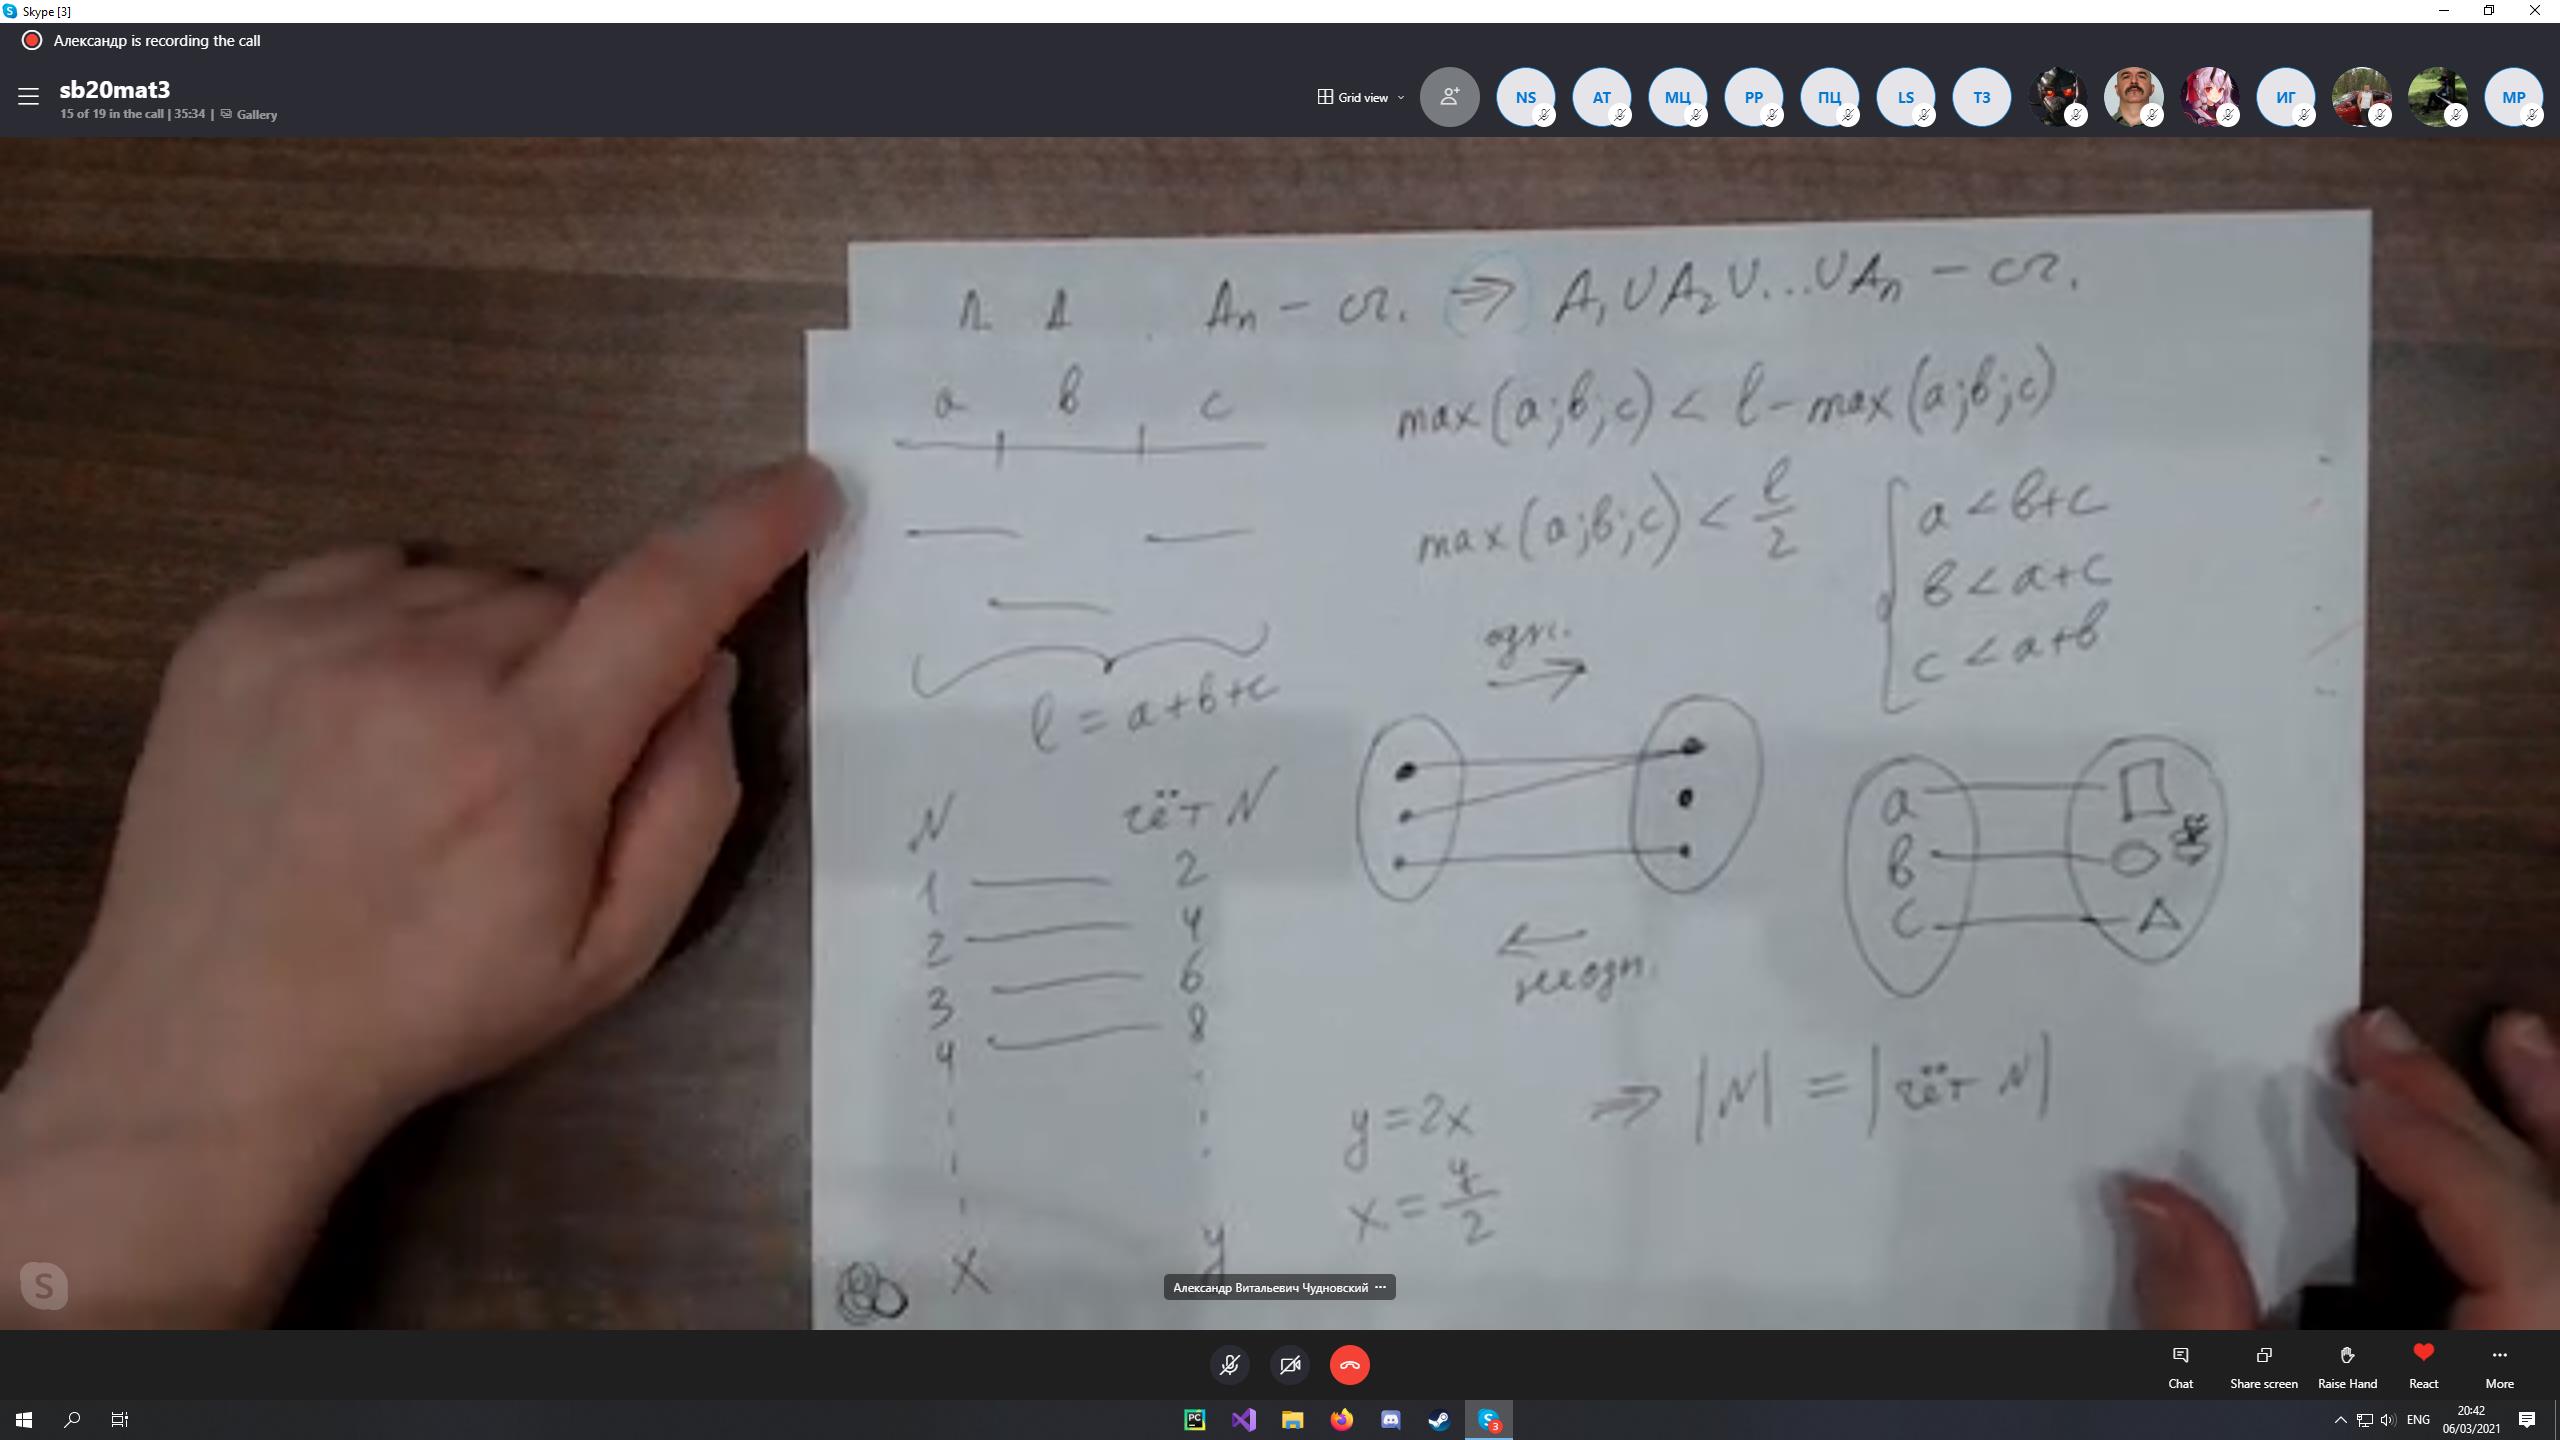 Skype [3]
Александр is recording the call
sb20mat3
15 of 19 in the call | 35:34 | Gallery
Grid view
NS АТ МЦ PP ПЦ LS ТЗ ИГ МР
An – сч. ⇒ A₁ ∪ A₂ ∪ ... ∪ An – сч.
a b c
max(a;b;c) < l – max(a;b;c)
max(a;b;c) < l/2
a < b+c
b < a+c
c < a+b
l = a+b+c
одн.
неодн.
N чёт N
1 2
2 4
3 6
4 8
x y
a
b
c
y = 2x
x = y/2
⇒ |N| = |чёт N|
Александр Витальевич Чудновский
Chat
Share screen
Raise Hand
React
More
ENG
20:42
06/03/2021